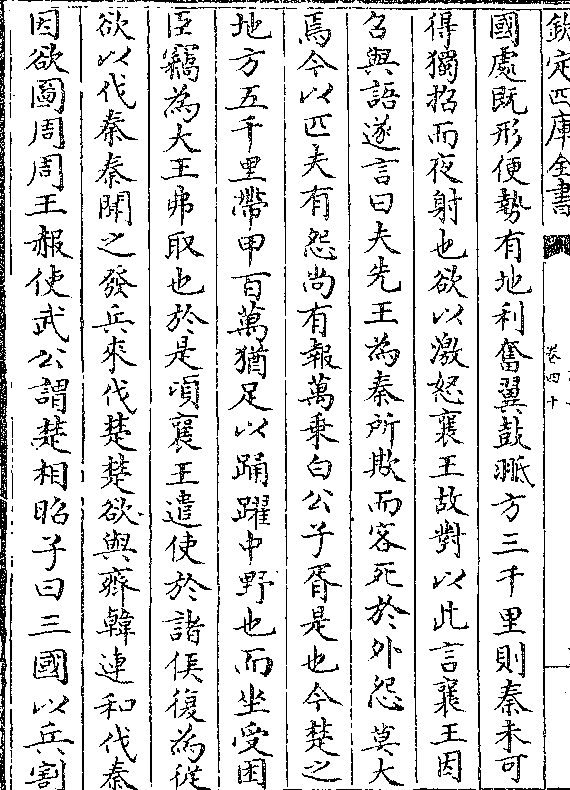 欽定四庫全書
卷四十
國處既形便勢有地利奮翼鼓䎗方三千里則秦未可
得獨招而夜射也欲以激怒襄王故對以此言襄王因
召與語遂言曰夫先王為秦所欺而客死於外怨莫大
焉今以匹夫有怨尚有報萬乗白公子胥是也今楚之
地方五千里帶甲百萬猶足以踊躍中野也而坐受困
臣竊為大王弗取也於是頃襄王遣使於諸侯復為從
欲以伐秦秦聞之發兵來伐楚楚欲與齊韓連和伐秦
因欲圖周周王赧使武公謂楚相昭子曰三國以兵割